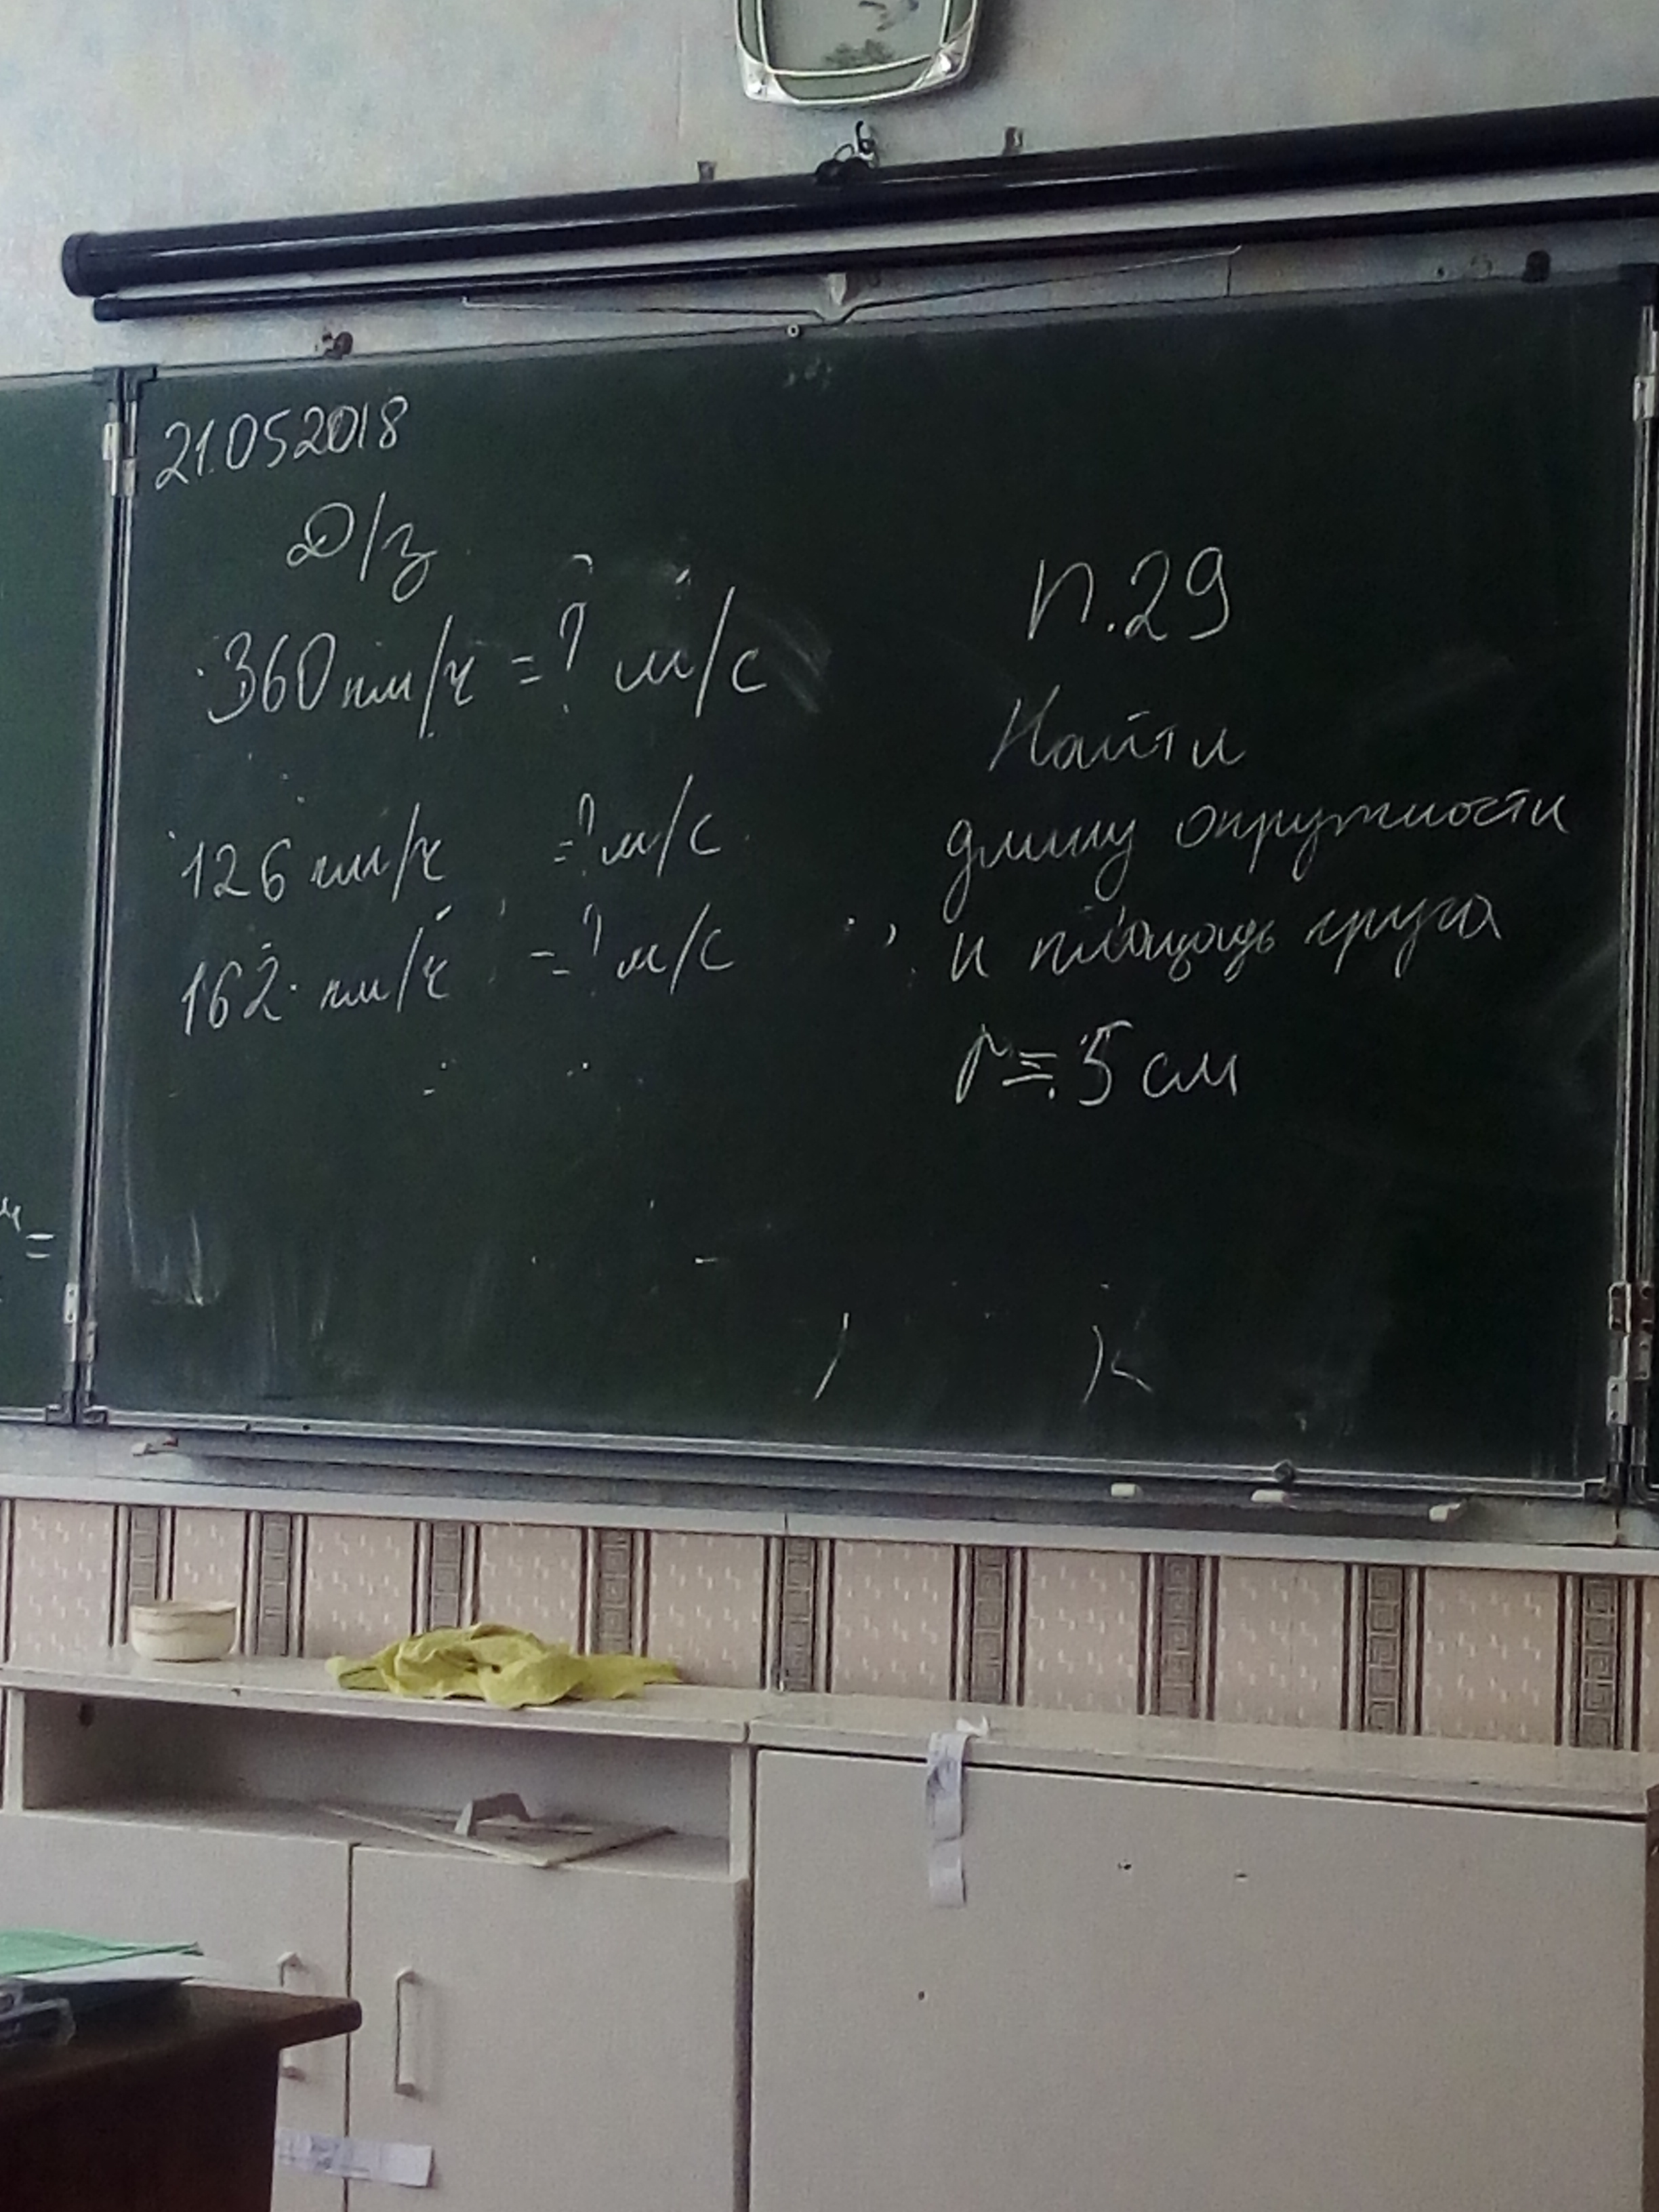 21.05 2018
Д/з
360 км/ч = ? м/с
126 км/ч = ? м/с
162 км/ч = ? м/с
п.29
Найти
длину окружности
и площадь круга
r = 5 см
=